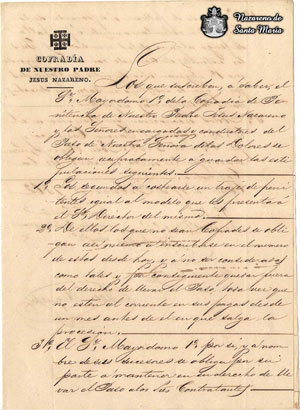 Nazareno de
Santa María
COFRADÍA
DE NUESTRO PADRE
JESUS NAZARENO.
Los que suscriben, a saber, el
Sr. Mayordomo 1º de la Cofradia de Pe-
nitencia de Nuestro Padre Jesus Nazareno
y los Señores encargados y conductores del
Paso de Nuestra Señora de los Dolores se
obligan a guardar las esti
pulaciones siguientes.
1ª Los segundos a costearse un traje de peni
tentes igual al modelo que les presentará
el Sr. Rector del mismo.
2ª De ellos los que no sean Cofrades se obli-
gan en el numero
de estos desde hoy, y a no ser considerados
como tales y por consiguiente quedar fuera
del derecho de llevar el Paso
no esten al corriente en sus pagas desde
un mes antes del en que salga la
procesion.
3ª El Sr. Mayordomo 1º por si, y a nom
bre de sus sucesores se obliga por su
parte a mantener en el derecho de lle
var el Paso a los Contratantes